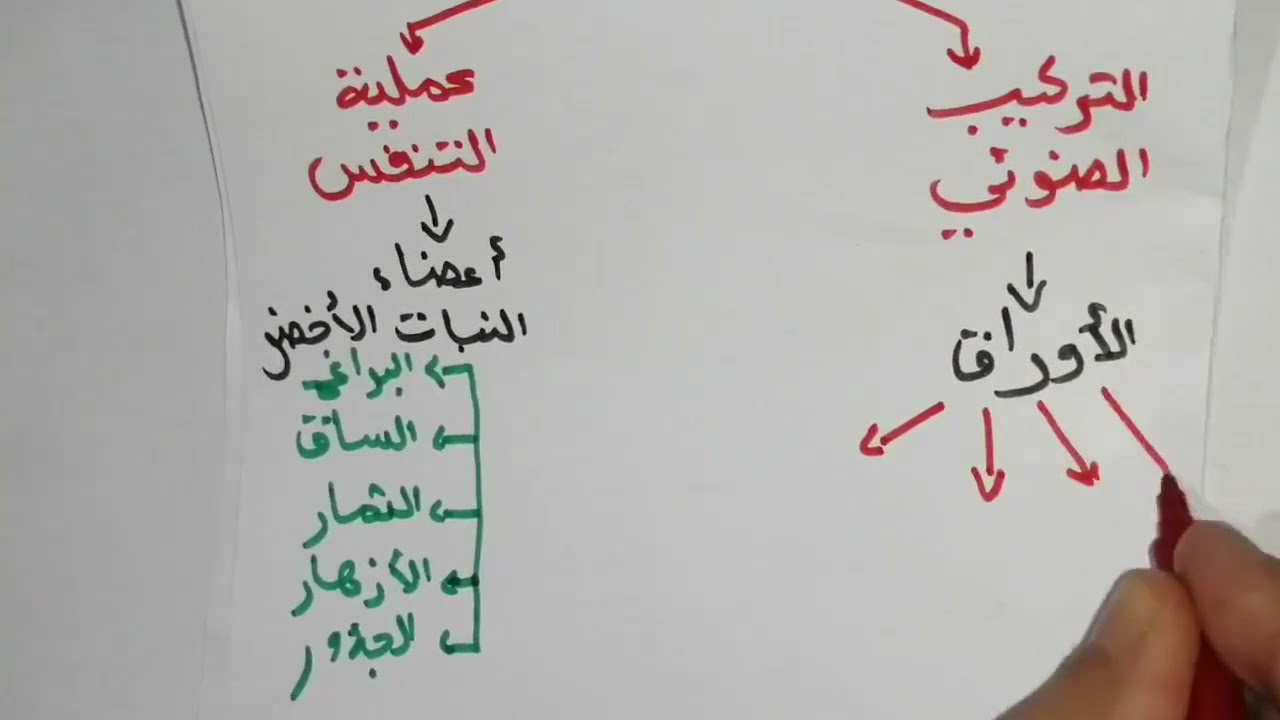 التركيب
الضوئي
الأوراق
عملية
التنفس
أعضاء
النبات الأخضر
البراعم
الساق
الثمار
الأزهار
الجذور